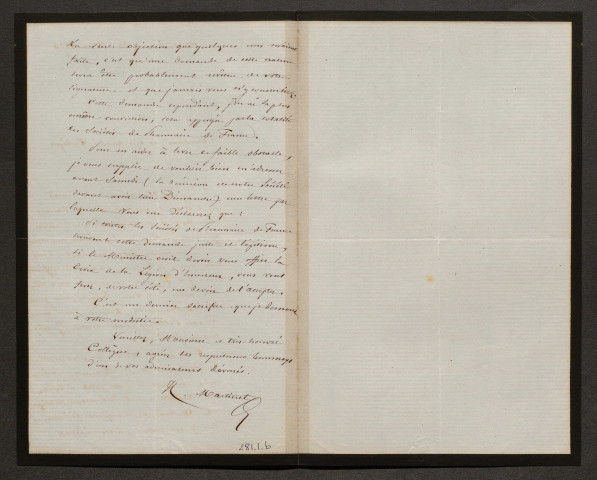 La seule objection que quelques uns m'aient
faite, c'est qu'une demande de cette nature
devra être probablement revêtue de votre
signature et que jamais vous n'y consentirez.
Cette demande cependant, j'en ai la plus
entière conviction, sera appuyée par la totalité
des Sociétés de Pharmacie de France.
Pour m'aider à lever ce faible obstacle,
je vous supplie de vouloir bien m'adresser
avant Samedi (la réunion de notre Société
devant avoir lieu Dimanche) une lettre par
laquelle vous me déclarerez que:
Si toutes les Sociétés de Pharmacie de France
trouvent cette demande juste et légitime,
et si le Ministre croit devoir vous offrir la
Croix de la Légion d'honneur, vous vous
ferez, de votre côté, un devoir de l'accepter.
C'est un dernier sacrifice que je demande
à votre modestie.
Veuillez, Monsieur et très honoré
Collègue, agréer les respectueux hommages
d'un de vos admirateurs dévoués.
Martinet
281.1.6